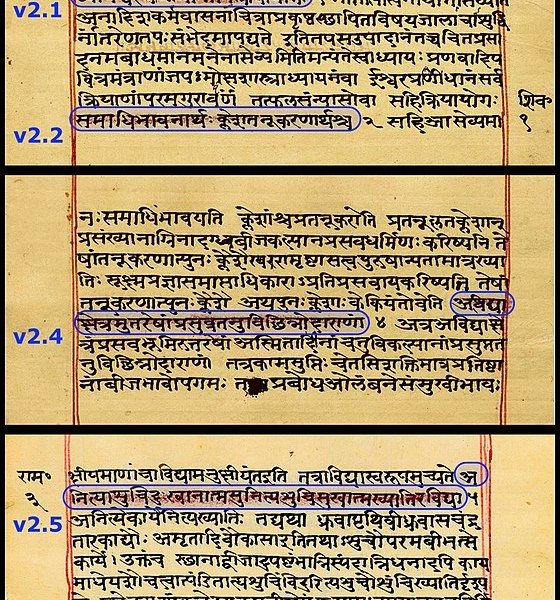 v2.1
अनादिकर्मवासनाचित्राप्रत्युपस्थापितविषयजालाचाशुद्धि
र्नांतरेणतपः संभेदमापद्यते इतितपसउपादानंतच्चचित्तप्रसा
दनमबाधमानमनेनासेव्यमितिमन्यंतेस्वाध्यायः प्रणवादिप
वित्रमंत्राणांजपःमोक्षशास्त्राध्यायनंवा ईश्वरप्रणिधानंसर्व
क्रियाणांपरमगुरावर्पणं तत्फलसंन्यासोवा सहिक्रियायोगः
शिवः
१
v2.2
समाधिभावनार्थः क्लेशतनूकरणार्थश्च २ सहिआसेव्यमा
नः समाधिंभावयति क्लेशांश्चप्रतनूकरोति प्रतनूकृतक्लेशान्
प्रसंख्यानाग्निनादग्धबीजकल्पानप्रसवधर्मिणः करिष्यति ते
षांतनूकरणात्पुनः क्लेशैरपरामृष्टासत्वपुरुषान्यतामात्रख्या
तिः सूक्ष्मप्रज्ञासमाप्ताधिकाराप्रतिप्रसवायकल्पिष्यति तेषां
तनूकरणात्पुनः क्लेशै अथपुनः क्लेशाः केकियंतोवेति अविद्या
v2.4
क्षेत्रमुत्तरेषांप्रसुप्ततनुविछिन्नोदाराणां ४ अत्रअविद्याक्षे
त्रंप्रसवभूमिरुत्तरेषां अस्मितादीनां चतुर्विकल्पानांप्रसुप्तत
नुविछिन्नोदाराणां तत्रकाप्रसुप्तिः चेतसिशक्तिमात्रप्रतिष्ठा
नांबीजभावोपगमः तस्यप्रबोधआलंबनेसंमुखीभावः
रामः
२
क्षीयमाणांचाविद्यामनुक्षीयंतइति तत्राविद्यास्वरूपमुच्यते अ
नित्याशुचिदुःखानात्मसुनित्यशुचिसुखात्मख्यातिरविद्या ५
v2.5
अनित्येकार्येनित्यख्यातिः तद्यथा ध्रुवापृथिवीध्रुवासचंद्र
तारकाद्यौः अमृतादिवौकसइतितथाशुचौपरमबीभत्स
काये उक्तंच स्थानाद्बीजादुपष्टंभान्निस्यंदान्निधनादपि काय
माधेयशौचत्वात्पंडिताह्यशुचिंविदुरित्यशुचौशुचिख्यातिर्दृश्य